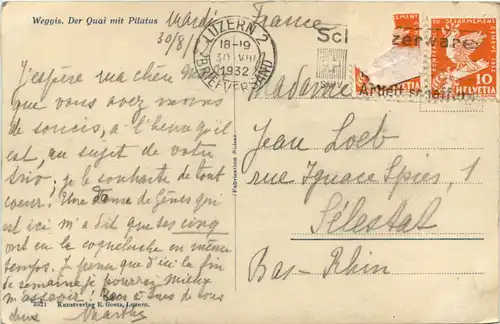 Weggis. Der Quai mit Pilatus
Mardi
30/8/
France
LUZERN 2
18-19
30.VIII
1932
BRIEFVERSAND
Sch zerware
Arbeit schafft
DU DESARMEMENT
10
HELVETIA
J'espère ma chère
que vous avez moins
de soucis, à l'heure qu'il
est, au sujet de votre
trio, je le souhaite de tout
coeur! Une Dame de Gênes qui
est ici m'a dit que ses cinq
ont eu la coqueluche en même
temps. Je pense que d'ici la fin
de semaine je pourrai mieux
m'asseoir! de vous
deux Marthe
Madame
Jean Loeb
rue Ignace Spies, 1
Sélestat
Bas-Rhin
(Fabrication Suisse)
2821 Kunstverlag E. Goetz, Luzern.